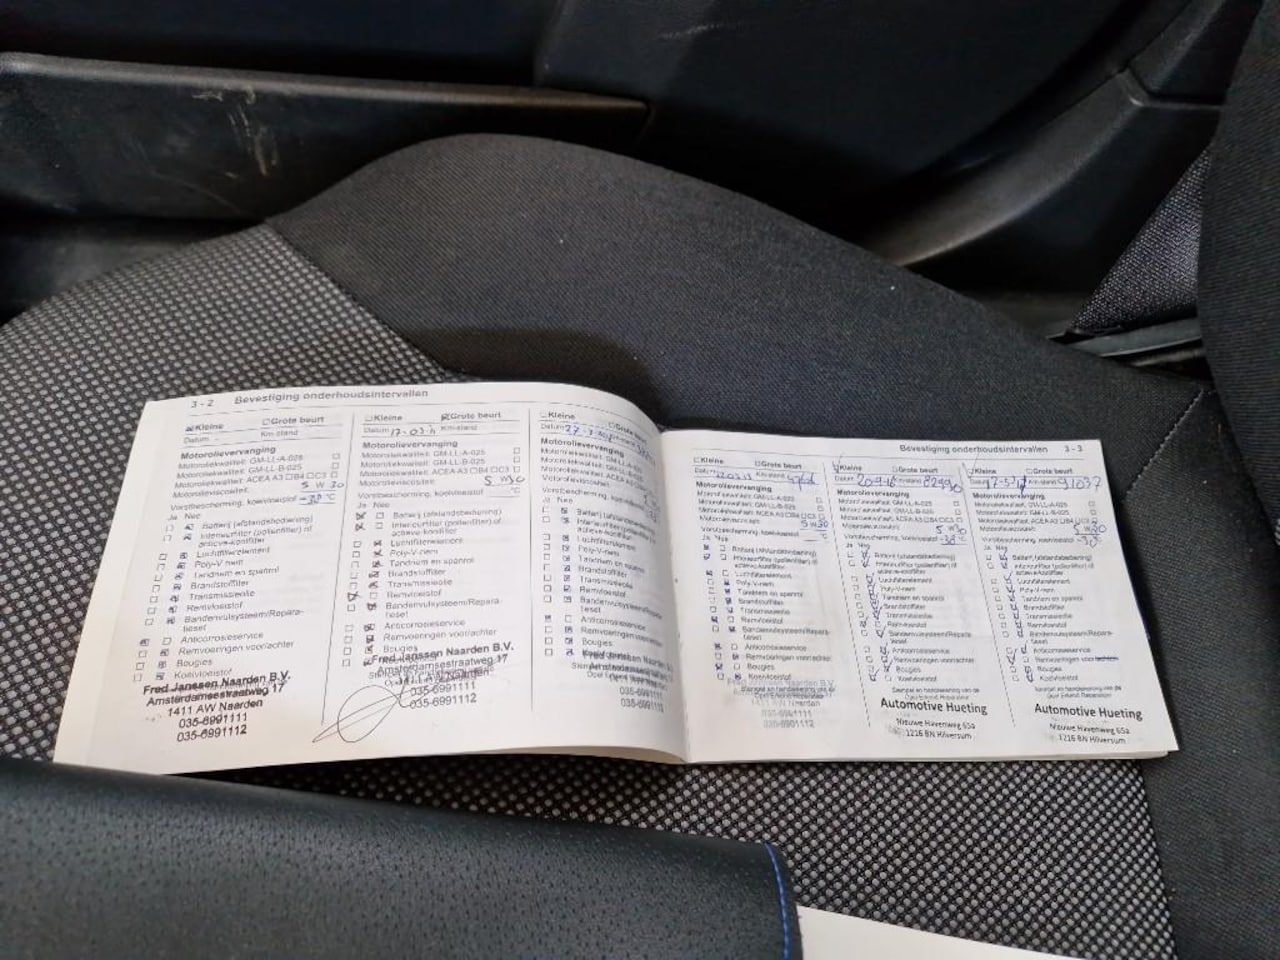 3 - 2 Bevestiging onderhoudsintervallen
Kleine Grote beurt
Datum Km-stand
Motorolievervanging
Motoroliekwaliteit: GM-LL-A-025
Motoroliekwaliteit: GM-LL-B-025
Motoroliekwaliteit: ACEA A3 B4 C3
Motorolieviscositeit:
5 W 30
Vorstbescherming, koelvloeistof °C
Ja Nee
Batterij (afstandsbediening)
Interieurfilter (pollenfilter) of
actieve-koolfilter
Luchtfilterelement
Poly-V riem
Tandriem en spanrol
Brandstoffilter
Transmissieolie
Remvloeistof
Bandenvulsysteem/Repara-
tieset
Anticorrosieservice
Remvoeringen voor/achter
Bougies
Koelvloeistof
Fred Janssen Naarden B.V.
Amsterdamsestraatweg 17
1411 AW Naarden
035-6991111
035-6991112
Kleine Grote beurt
Datum Km-stand
Motorolievervanging
Motoroliekwaliteit: GM-LL-A-025
Motoroliekwaliteit: GM-LL-B-025
Motoroliekwaliteit: ACEA A3 B4 C3
Motorolieviscositeit:
5 W30
Vorstbescherming, koelvloeistof °C
Ja Nee
Batterij (afstandsbediening)
Interieurfilter (pollenfilter) of
actieve-koolfilter
Luchtfilterelement
Poly-V-riem
Tandriem en spanrol
Brandstoffilter
Transmissieolie
Remvloeistof
Bandenvulsysteem/Repara-
tieset
Anticorrosieservice
Remvoeringen voor/achter
Bougies
Fred Janssen Naarden B.V.
Amsterdamsestraatweg 17
035-6991111
035-6991112
Kleine Grote beurt
Datum
Motorolievervanging
Ja Nee
Batterij (afstandsbediening)
Interieurfilter (pollenfilter) of
actieve-koolfilter
Luchtfilterelement
Poly-V-riem
Tandriem en spanrol
Brandstoffilter
Transmissieolie
Remvloeistof
Bandenvulsysteem/Repara-
tieset
Anticorrosieservice
Remvoeringen voor/achter
Bougies
035-6991111
035-6991112
Bevestiging onderhoudsintervallen 3 - 3
Kleine Grote beurt
Datum Km-stand
Motorolievervanging
Motoroliekwaliteit: GM-LL-A-025
Motoroliekwaliteit: GM-LL-B-025
Motoroliekwaliteit: ACEA A3 B4 C3
Motorolieviscositeit:
5 W30
Ja Nee
Batterij (afstandsbediening)
Interieurfilter (pollenfilter) of
actieve-koolfilter
Luchtfilterelement
Poly-V-riem
Tandriem en spanrol
Brandstoffilter
Transmissieolie
Remvloeistof
Bandenvulsysteem/Repara-
tieset
Anticorrosieservice
Remvoeringen voor/achter
Bougies
Koelvloeistof
1411 AW Naarden
035-6991111
035-6991112
Kleine Grote beurt
Datum Km-stand
Motorolievervanging
Motoroliekwaliteit: GM-LL-A-025
Motoroliekwaliteit: GM-LL-B-025
Motoroliekwaliteit: ACEA A3 B4 C3
Motorolieviscositeit:
5 W30
Vorstbescherming, koelvloeistof
Ja Nee
Batterij (afstandsbediening)
Interieurfilter (pollenfilter) of
actieve-koolfilter
Luchtfilterelement
Poly-V-riem
Tandriem en spanrol
Brandstoffilter
Transmissieolie
Remvloeistof
Bandenvulsysteem/Repara-
tieset
Anticorrosieservice
Remvoeringen voor/achter
Bougies
Koelvloeistof
Stempel en handtekening van de
Opel Erkend Reparateur
Automotive Hueting
Nieuwe Havenweg 65a
1216 BN Hilversum
Kleine Grote beurt
Datum Km-stand 91037
Motorolievervanging
Motoroliekwaliteit: GM-LL-A-025
Motoroliekwaliteit: GM-LL-B-025
Motoroliekwaliteit: ACEA A3 B4 C3
Motorolieviscositeit:
5 W30
Vorstbescherming, koelvloeistof
Ja Nee
Batterij (afstandsbediening)
Interieurfilter (pollenfilter) of
actieve-koolfilter
Luchtfilterelement
Poly-V-riem
Tandriem en spanrol
Brandstoffilter
Transmissieolie
Remvloeistof
Bandenvulsysteem/Repara-
tieset
Anticorrosieservice
Remvoeringen voor/achter
Bougies
Koelvloeistof
Stempel en handtekening van de
Opel Erkend Reparateur
Automotive Hueting
Nieuwe Havenweg 65a
1216 BN Hilversum